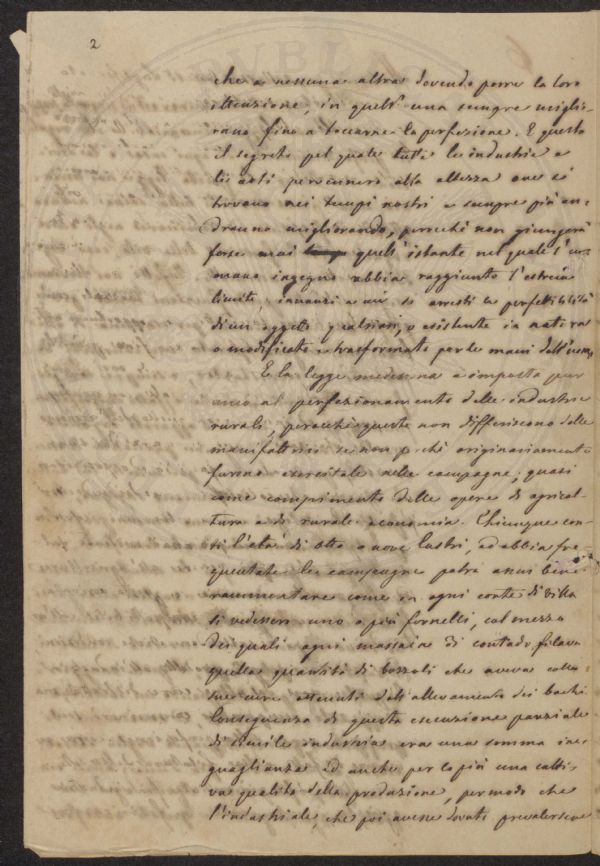 2
che a nessuna altra dovendo porre la loro
attenzione, in quell' una sempre miglio-
rano fino a toccarne la perfezione. E questo
il segreto pel quale tutte le industrie e
le arti pervennero alla altezza ove si
trovano nei tempi nostri e sempre più an-
dranno migliorando, perocchè non giungerà
forse mai quell' istante nel quale l' u-
mano ingegno abbia raggiunto l' estremo
limite, innanzi a cui si arresti la perfettibilità
di un oggetto qualsiasi, o esistente in natura
o modificato e trasformato per le mani dell' uomo.
E la legge medesima è imposta pur
anco al perfezionamento delle industrie
rurali, perocchè queste non differiscono dalle
manifatture se non perchè originariamente
furono esercitate nelle campagne, quasi
come compimento delle opere di agricol-
tura e di rurale economia. Chiunque con-
ti l' età di otto o nove lustri, ed abbia fre-
quentate le campagne potrà assai bene
rammentare come in ogni corte di villa
si vedessero uno o più fornelli, col mezzo
dei quali ogni massaia di contado filava
quella quantità di bozzoli che aveva colle
sue cure ottenuti dall' allevamento dei bachi.
Conseguenza di questa esecuzione parziale
di simile industria era una somma ine-
guaglianza ed anche per lo più una catti-
va qualità della produzione, per modo che
l' industriale, che poi avesse dovuto prevalersene